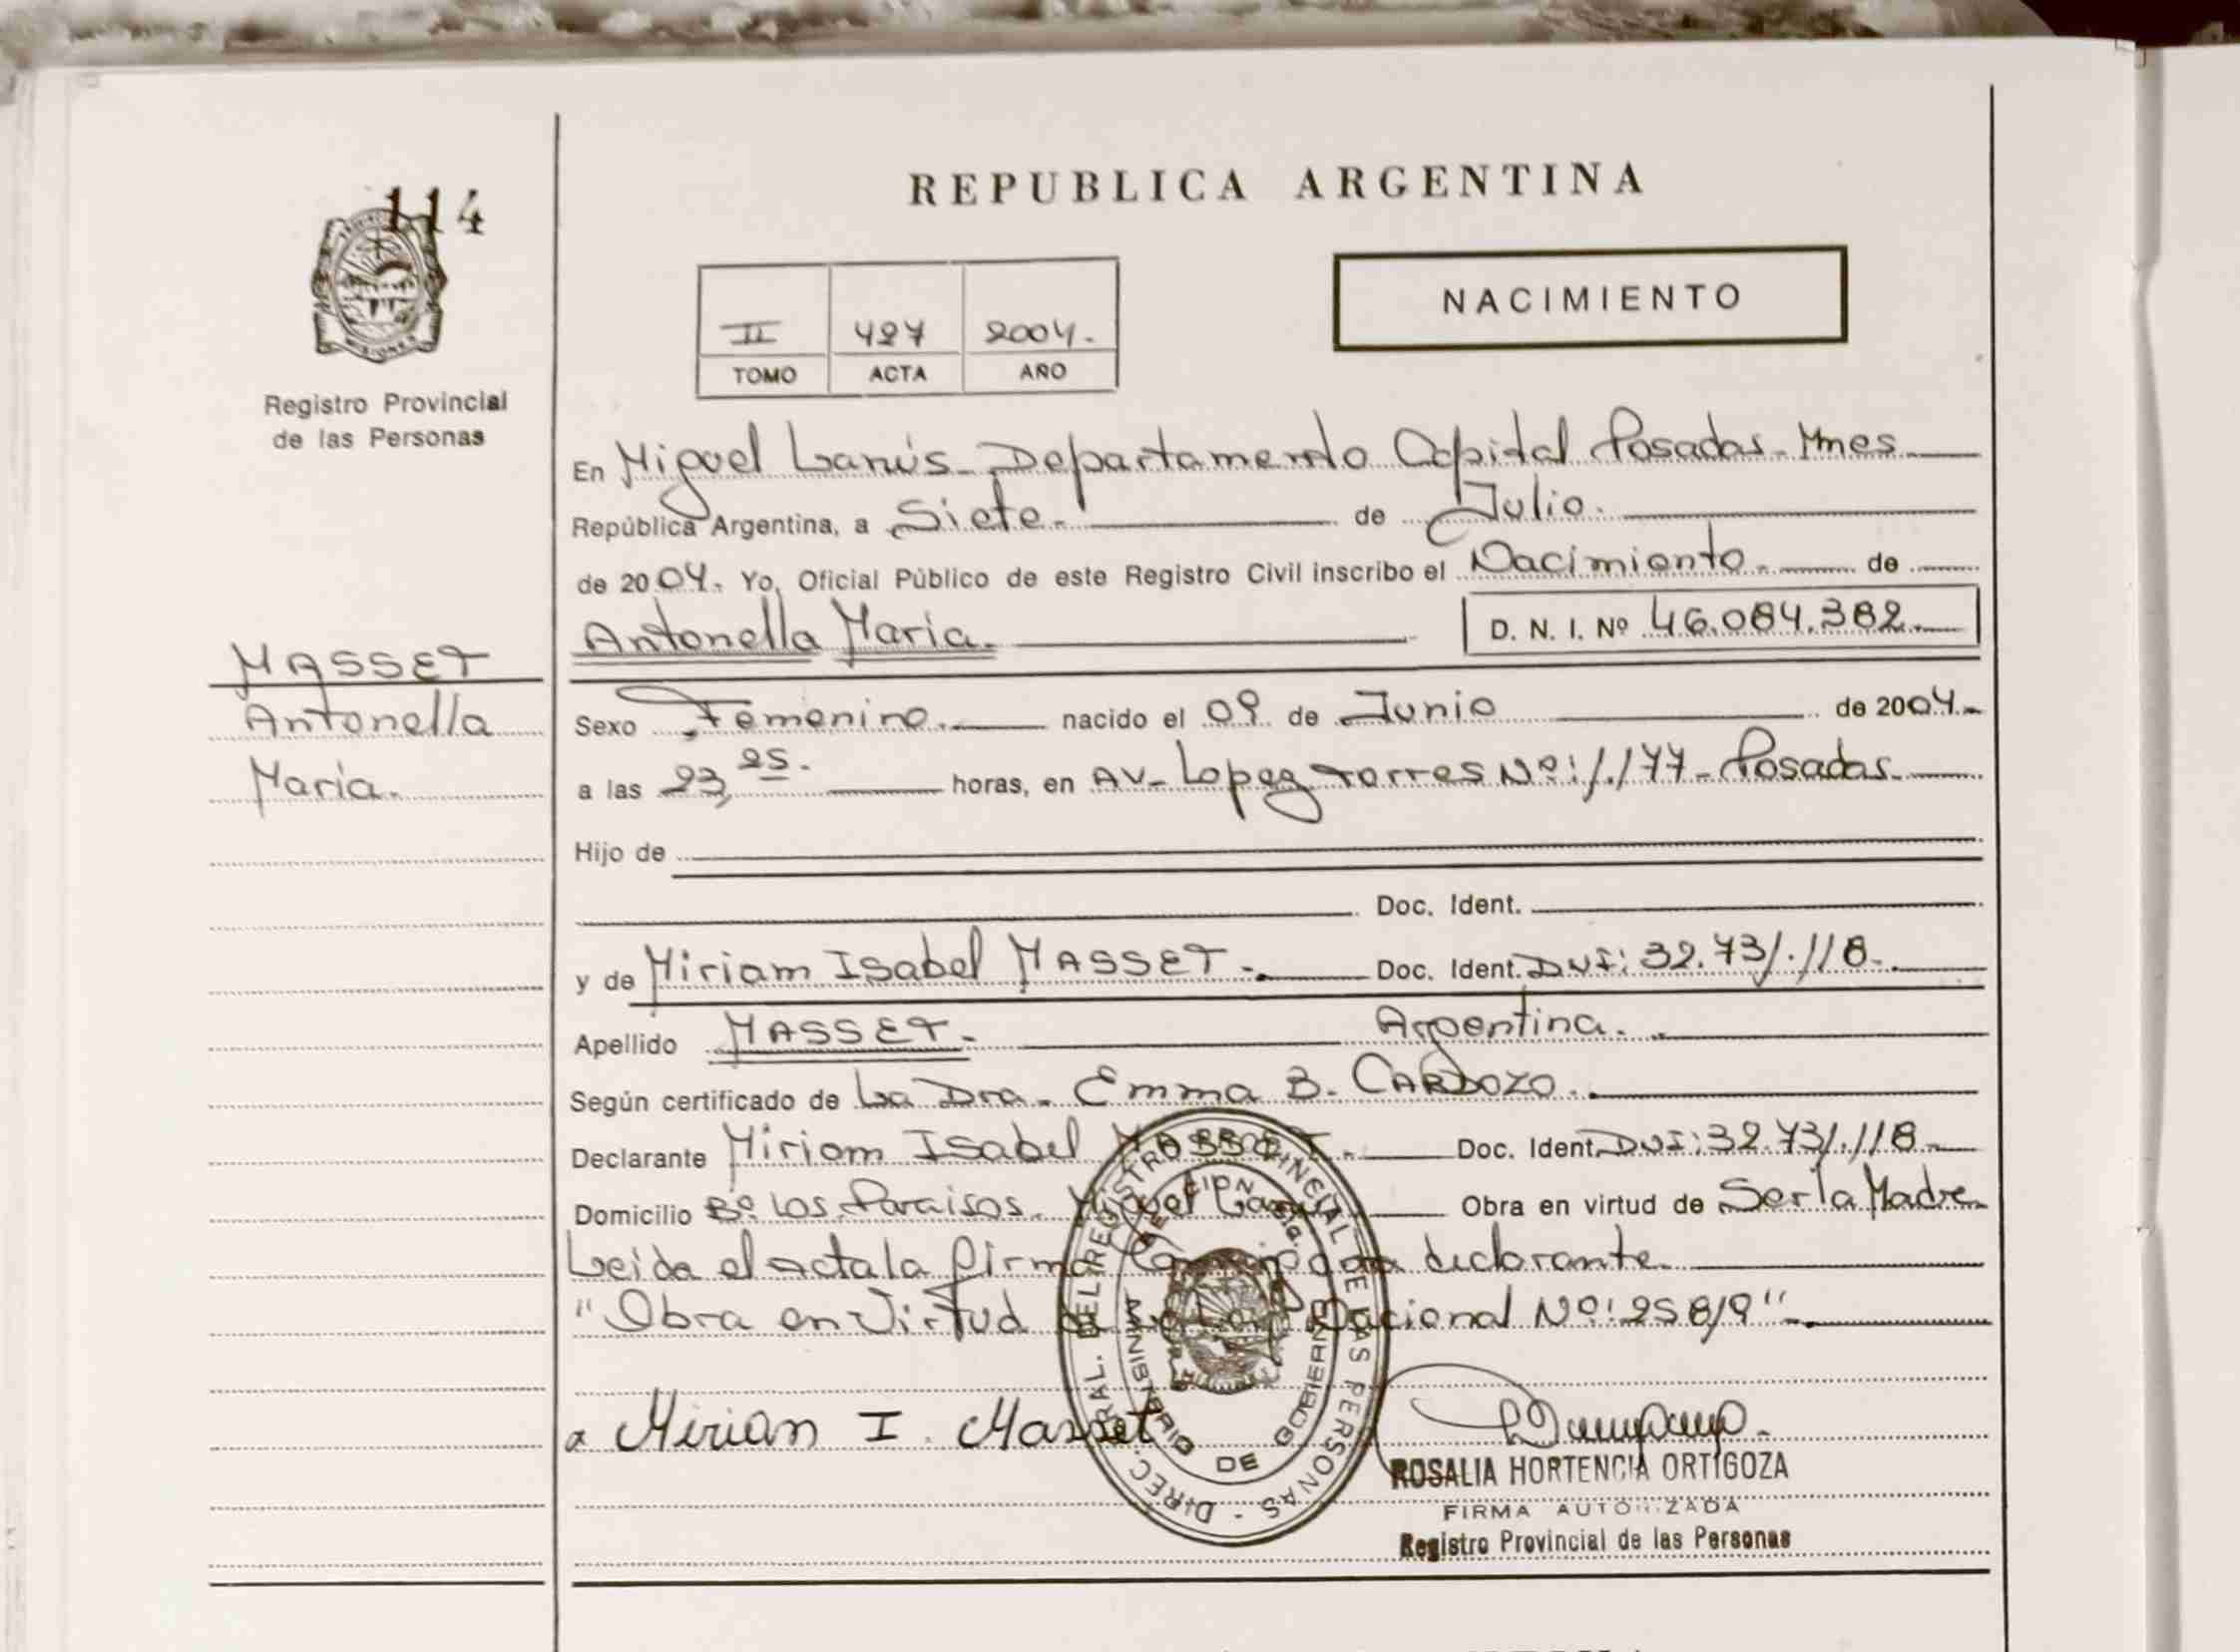 114
REPUBLICA ARGENTINA
NACIMIENTO
II 427 2004.
TOMO ACTA AÑO
MISIONES
Registro Provincial
de las Personas
En Miguel Lanús - Departamento Capital Posadas - Mnes
República Argentina, a Siete. de Julio.
de 2004. Yo, Oficial Público de este Registro Civil inscribo el Nacimiento. de
Antonella Maria.
D. N. I. Nº 46.084.382.
MASSET
Antonella
Maria.
Sexo Femenino. nacido el 09 de Junio de 2004.
a las 23,25. horas, en AV- Lopez Torres Nº: 1.177 - Posadas.
Hijo de
Doc. Ident.
y de Miriam Isabel MASSET. Doc. Ident. DNI: 32.731.118.
Apellido MASSET. Argentina.
Según certificado de La Dra. Emma B. CARDOZO.
Declarante Miriam Isabel MASSET. Doc. Ident. DNI: 32.731.118.
Domicilio Bº Los Paraisos. Miguel Lanús Obra en virtud de Ser la Madre
Leida el acta la firma Conmigo la declarante.
"Obra en Virtud de la Ley Nacional Nº: 25819".
a Mirian I. Masset
DIREC. GRAL. DEL REGISTRO PROVINCIAL DE LAS PERSONAS -
MINISTERIO DE GOBIERNO
ROSALIA HORTENCIA ORTIGOZA
FIRMA AUTORIZADA
Registro Provincial de las Personas